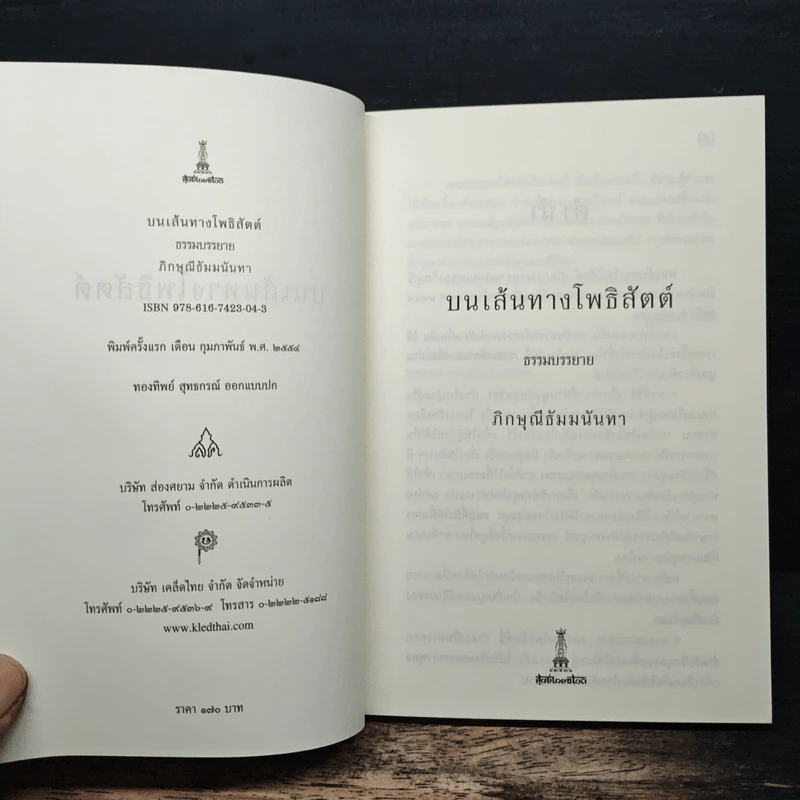 บนเส้นทางโพธิสัตต์
ธรรมบรรยาย
ภิกษุณีธัมมนันทา
ISBN 978-616-7423-04-3
พิมพ์ครั้งแรก เดือน กุมภาพันธ์ พ.ศ. ๒๕๕๔
ทองทิพย์ สุทธกรณ์ ออกแบบปก
บริษัท ส่องศยาม จำกัด ดำเนินการผลิต
โทรศัพท์ ๐-๒๒๒๕-๙๕๓๓-๕
บริษัท เคล็ดไทย จำกัด จัดจำหน่าย
โทรศัพท์ ๐-๒๒๒๕-๙๕๓๖-๙ โทรสาร ๐-๒๒๒๒-๕๑๘๘
www.kledthai.com
ราคา ๑๗๐ บาท
บนเส้นทางโพธิสัตต์
ธรรมบรรยาย
ภิกษุณีธัมมนันทา